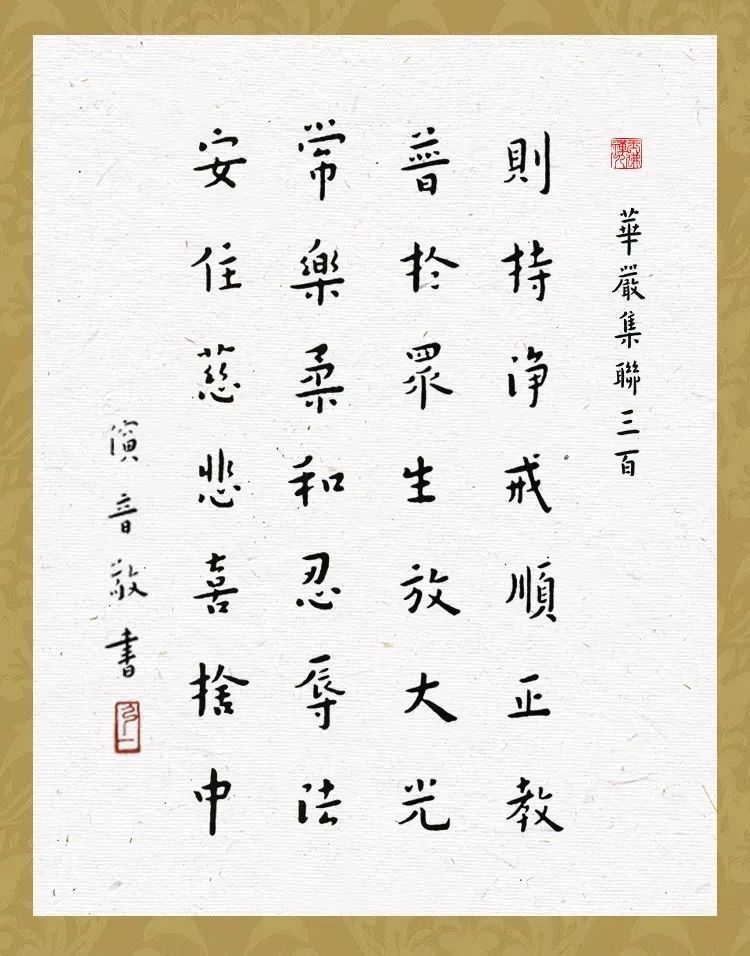 華嚴集聯三百
則持淨戒順正教
普於眾生放大光
常樂柔和忍辱法
安住慈悲喜捨中
音敬書